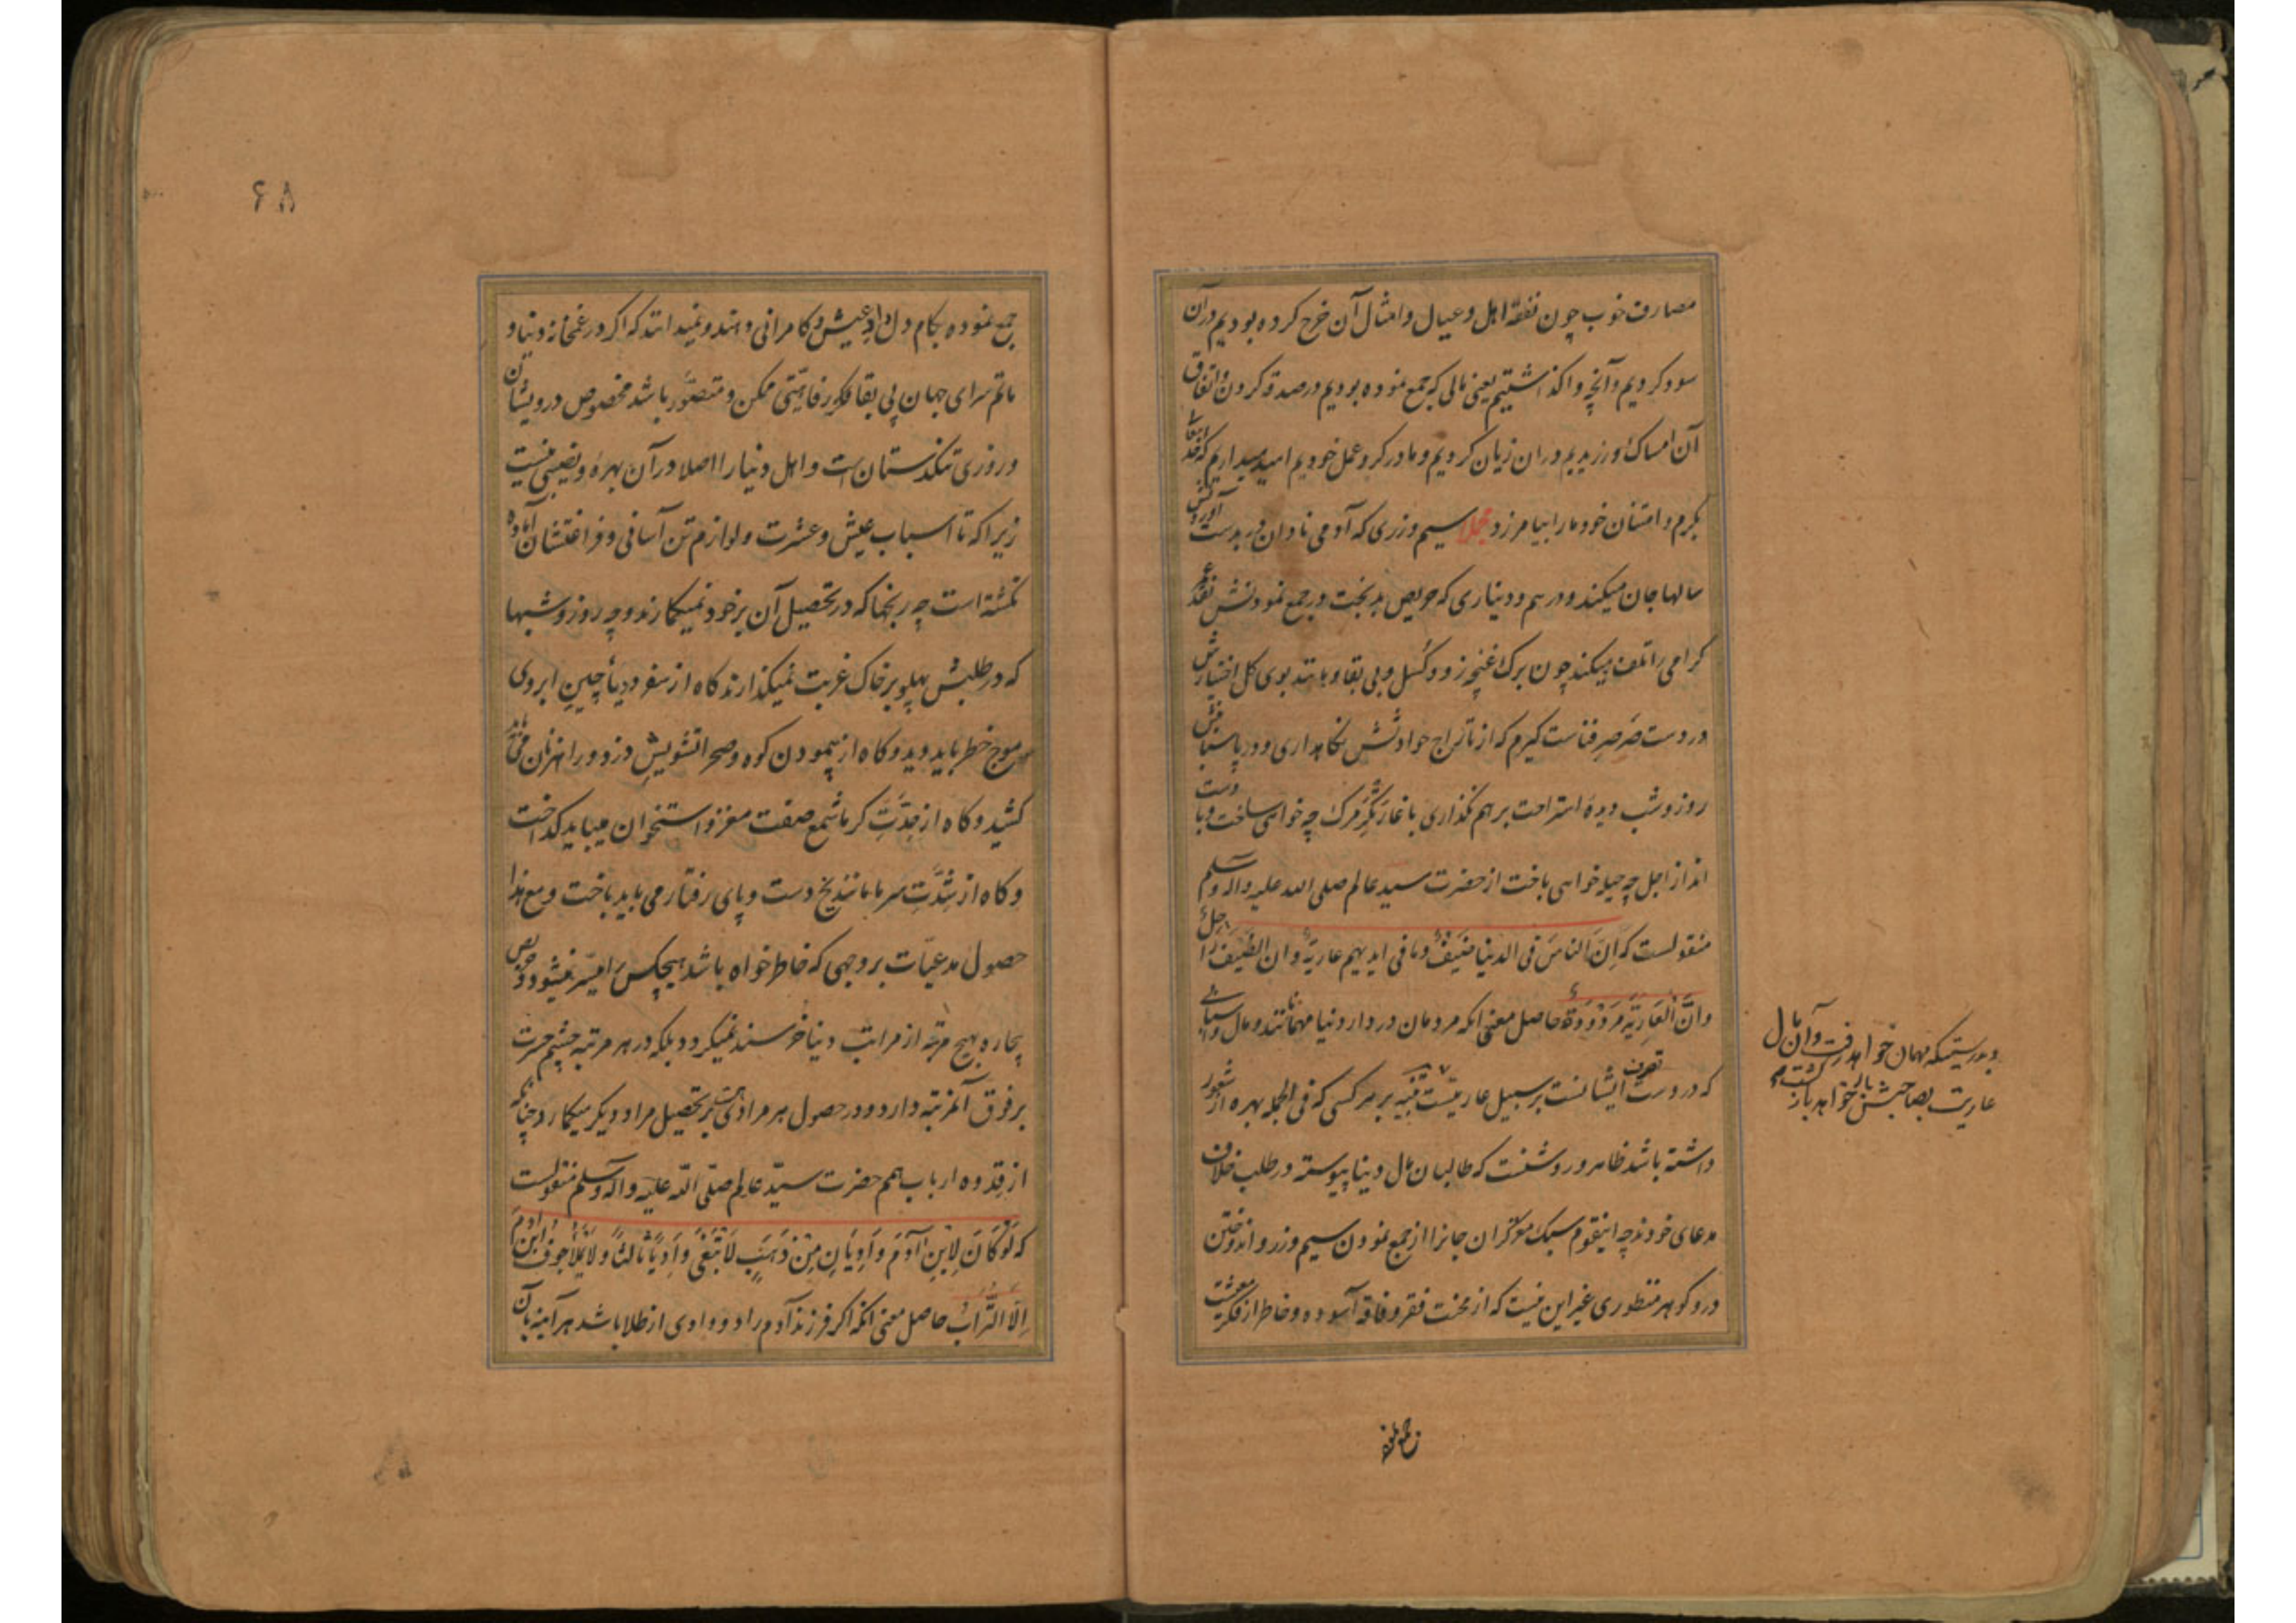 مصارف خوب چون نفقه اهل و عیال و امثال آن خرج کرده بودیم در آن
سود کردیم و آنچه واگذاشتیم یعنی مالی که جمع نموده بودیم در صدقه کردن و اتفاق
آن امساک ورزیدیم در ان زیان کردیم و ما در کرو عمل خودیم امید میداریم که خدا
بکرم و امتنان خود ما را بیامرزد مجملا سیم و زری که آدمی نادان در بدست آوردنش
سالها جان میکند و درهم و دیناری که حریص بدبخت در جمع نمودنش نقد عمر
کرامی را تلف میکند چون برک غنچه زود کسل و بی بقا و مانند بوی کل اختیارش
در دست صرصر فناست کیرم که از تاراج حوادثش نکاهداری و در پاسبانیش
روز و شب دیده استراحت برهم نکذاری با غارتکر مرک چه خواهی ساخت و با دست
انداز اجل چه حیله خواهی باخت از حضرت سید عالم صلی الله علیه و اله و سلم
منقولست که اِنّ الناسَ فی الدنیا ضَیفٌ وما فی ایدیهم عاریةٌ و ان الضَیفَ راحِلٌ
وانَّ العَارِیَةَ مَردُودَةٌ حاصل معنی انکه مردمان در دار دنیا مهمانند و مال و اسبابی
که در دست تصرف ایشانست بر سبیل عاریتست بر هر کسی که فی الجمله بهره از شعور
داشته باشد ظاهر و روشنست که طالبان مال دنیا پیوسته در طلب خلاف
مدعای خودند چه اینقوم سبک مغز کران جانرا از جمع نمودن سیم و زر و اندوختن
در و کوهر منظوری غیر این نیست که از محنت فقر و فاقه آسوده و خاطر از فکر معیشت
و بدرستیکه مهمان خواهد رفت و آن مال
عاریت بصاحبش باز خواهد کشت
۶۸
جمع نموده بکام دل داد عیش و کامرانی دهند و نمیدانند که اکر در غمخانه دنیا و
ماتم سرای جهان بی بقا فکر رفاهیتی ممکن و متصوّر باشد مخصوص درویشان
و روزی تنکدستان است و اهل دنیا را اصلا در آن بهره و نصیبی نیست
زیرا که تا اسباب عیش و عشرت و لوازم تن آسانی و فراغتشان آماده
نکشته است چه رنجها که در تحصیل آن بر خود نمیکمارند و چه روز و شبها
که در طلبش پهلو بر خاک غربت نمیکذارند کاه از سفر دریا چین ابروی
موج خطر باید دید و کاه از پیمودن کوه و صحرا تشویش دزد و راهزنان می باید
کشید و کاه از حِدَّتِ کرما شمع صفت مغز و استخوان میباید کداخت
و کاه از شِدَّتِ سرما مانند یخ دست و پای رفتار می باید باخت و مع هذا
حصول مدعیّات بر وجهی که خاطرخواه باشد هیچکس را میسّر نمیشود و حریص
بیچاره بهیچ مرتبه از مراتب دنیا خرسند نمیکردد بلکه در هر مرتبه چشم حسرت
بر فوق آنمرتبه دارد و در حصول هر مرادی همّت بر تحصیل مراد دیکر میکمارد چنانکه
از قدوه ارباب همم حضرت سیّد عالم صلّی الله علیه و اله و سلم منقولست
که لَوکَانَ لِابنِ آدَمَ وَادِیَانِ مِن ذَهَبٍ لَابتَغی وَادِیًا ثالثاً و لَا یَملَأُ جوفَ ابن ادمَ
اِلّا التُّرابُ حاصل معنی انکه اکر فرزند آدم را دو وادی از طلا باشد هر آینه بآن